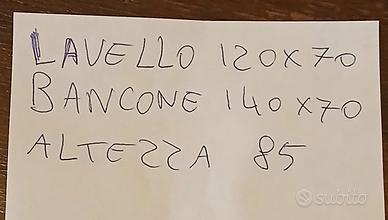 LAVELLO 120X70
BANCONE 140X70
ALTEZZA 85
subito